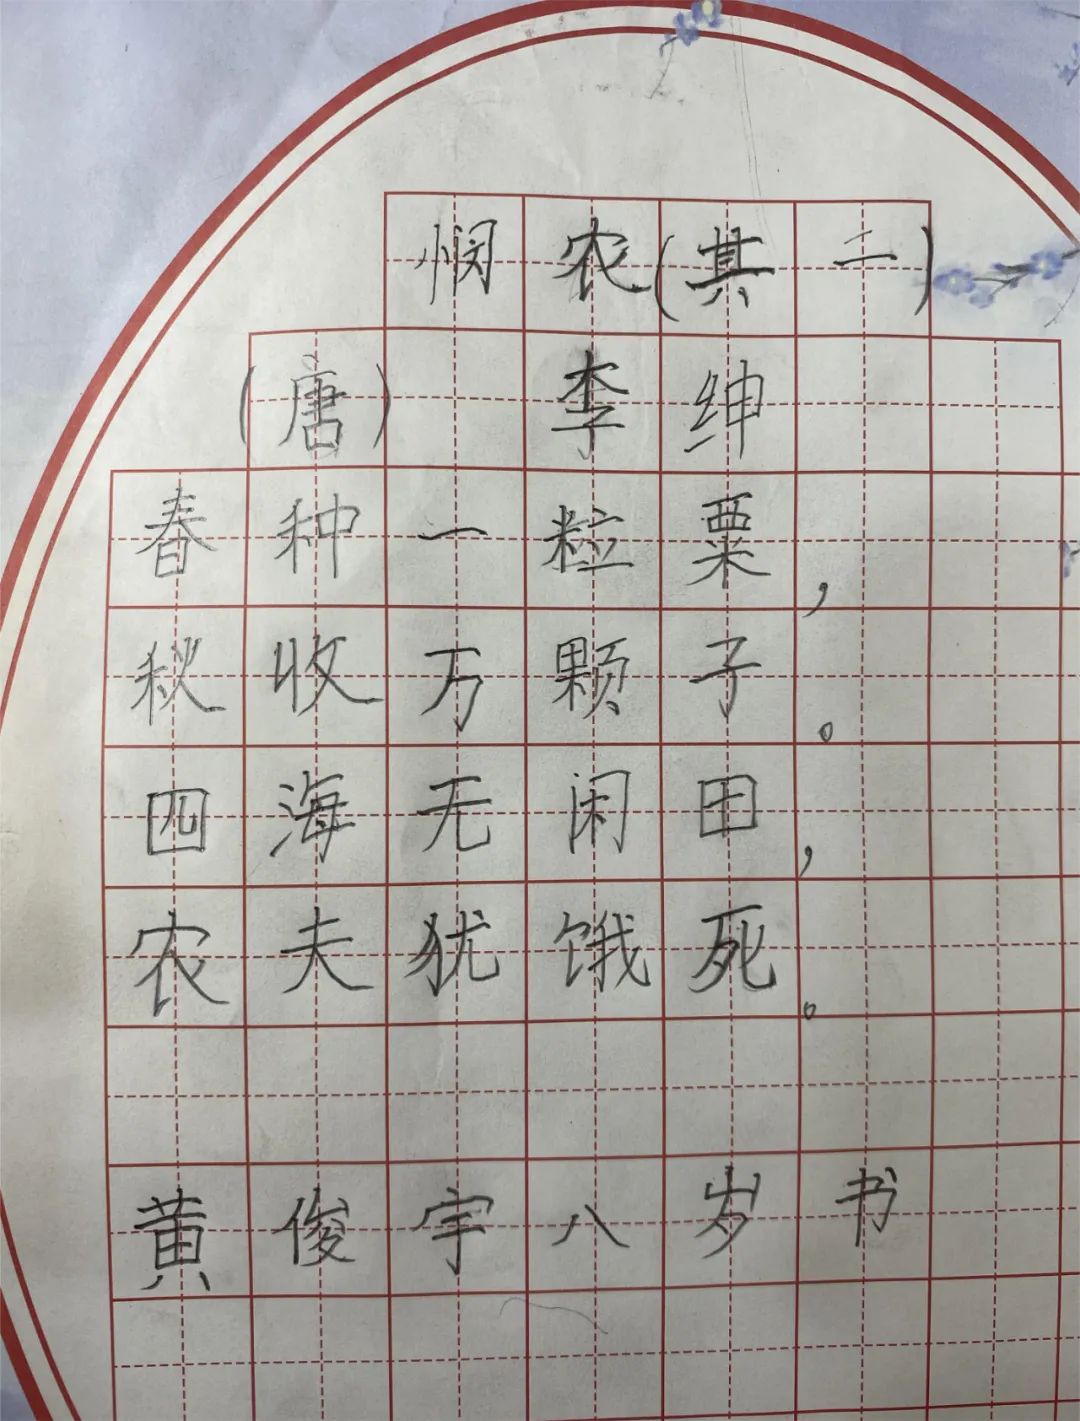 悯农(其二)
(唐) 李绅
春种一粒粟,
秋收万颗子。
四海无闲田,
农夫犹饿死。
黄俊宇八岁书